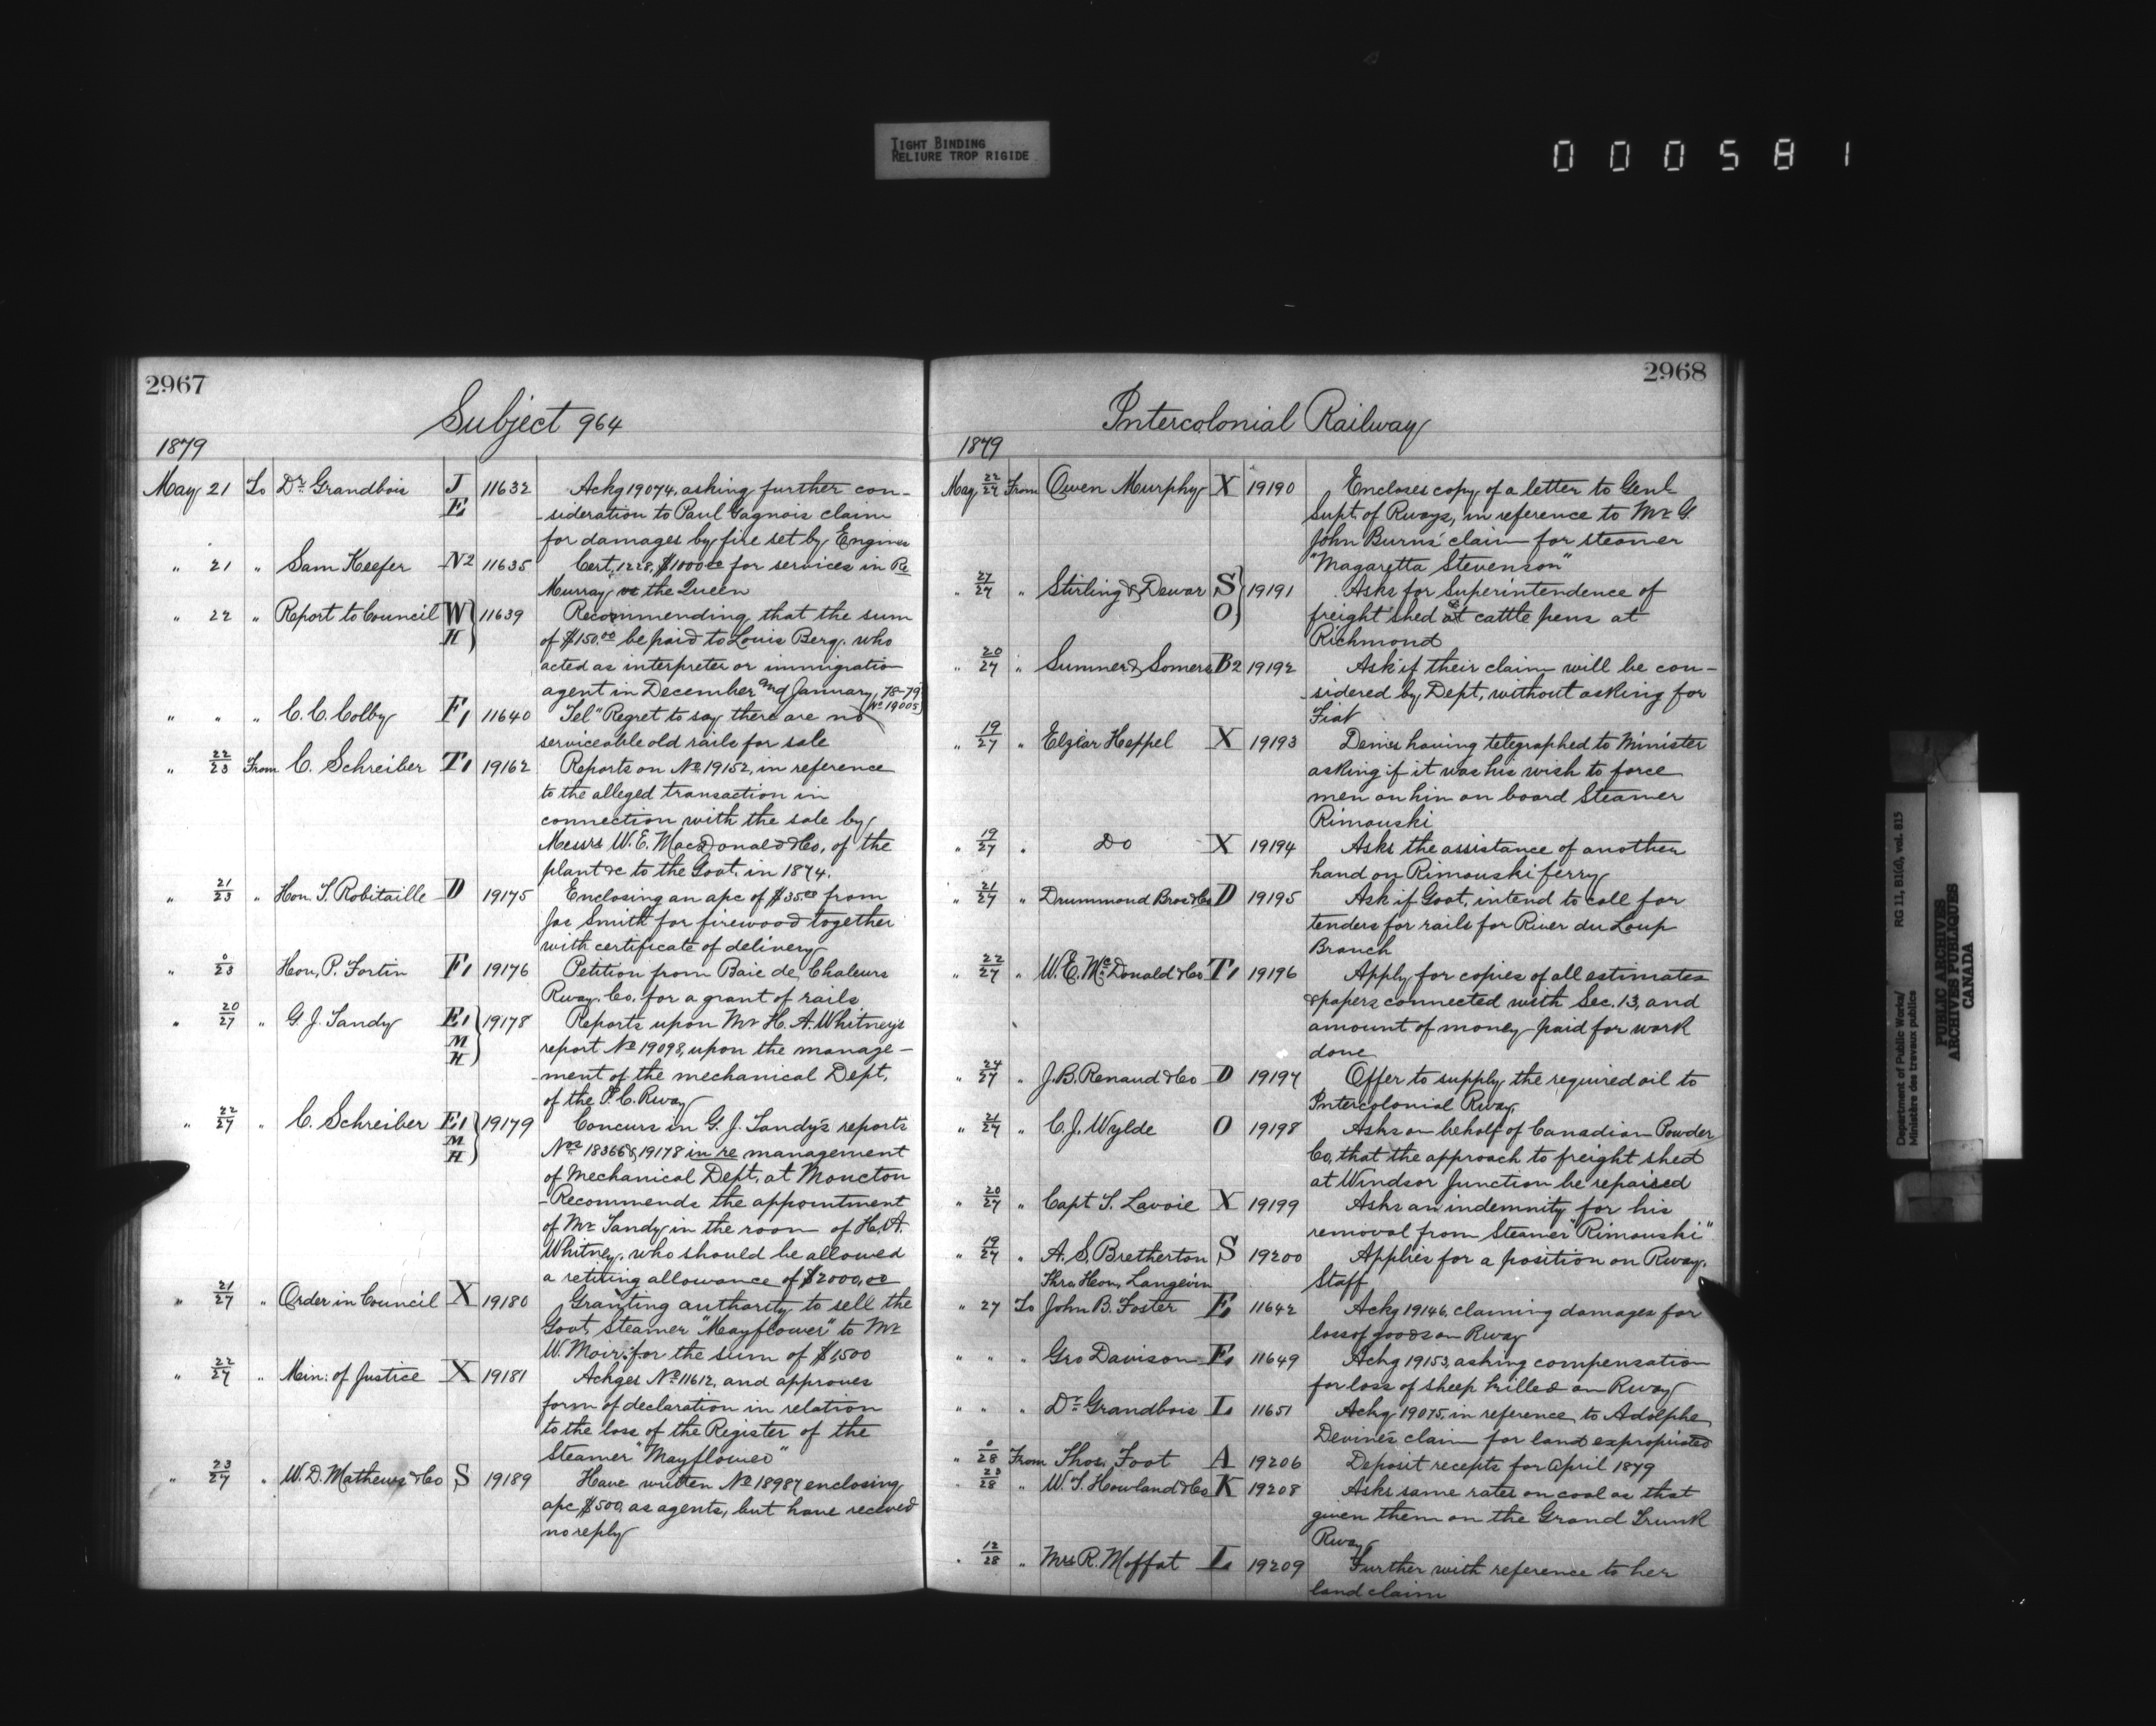 TIGHT BINDING
RELIURE TROP RIGIDE
000581
2967
Subject 964
1879
May 21 To Dr. Grandbois J E 11632 Ackg 19074, asking further con-
-sideration to Paul Gagnois claim
for damages by fire set by Engine
" 21 " Sam Keefer N2 11635 Cert. 1228, $1000.00 for services in Re
Murray vs the Queen
" 22 " Report to Council W H 11639 Recommending that the sum
of $150.00 be paid to Louis Berg. who
acted as interpreter or immigration
agent in December and January, 78-79
(No 19005)
" " " C. C. Colby F1 11640 Tel" Regret to say there are no
serviceable old rails for sale
" 22/23 From C. Schreiber T1 19162 Reports on No 19152, in reference
to the alleged transaction in
connection with the sale by
Messrs W. E. MacDonald & Co, of the
plant &c to the Govt. in 1874.
" 21/23 " Hon. T. Robitaille D 19175 Enclosing an apc of $35.00 from
Jas Smith for firewood together
with certificate of delivery
" 0/23 Hon. P. Fortin F1 19176 Petition from Baie de Chaleurs
Rway. Co. for a grant of rails
" 20/27 " G. J. Tandy E1 M H 19178 Reports upon Mr H. A. Whitney's
report No 19098, upon the manage-
-ment of the mechanical Dept.
of the I. C. Rway
" 22/27 " C. Schreiber E1 M H 19179 Concurs in G. J. Tandy's reports
Nos 18366 & 19178 in re management
of Mechanical Dept. at Moncton
-Recommends the appointment
of Mr Tandy in the room of H. A.
Whitney, who should be allowed
a retiring allowance of $2000.00
" 21/27 " Order in Council X 19180 Granting authority to sell the
Govt. Steamer "Mayflower" to Mr
W. Moir for the sum of $1,500
" 22/27 " Min: of Justice X 19181 Ackges No 11612, and approves
form of declaration in relation
to the loss of the Register of the
Steamer "Mayflower"
" 23/27 " W. D. Mathews & Co S 19189 Have written No 18987 enclosing
apc $500, as agents, but have received
no reply
2968
Intercolonial Railway
1879
May 22/27 From Owen Murphy X 19190 Encloses copy of a letter to Genl
Supt. of Rways, in reference to Mr G.
John Burns' claim for steamer
"Magaretta Stevenson"
" 27/27 " Stirling & Dewar S O 19191 Asks for Superintendence of
freight shed at cattle pens at
Richmond
" 20/27 " Sumner & Somers B2 19192 Ask if their claim will be con-
-sidered by Dept. without asking for
Fiat
" 19/27 " Elzéar Heppel X 19193 Denies having telegraphed to Minister
asking if it was his wish to force
men on him on board Steamer
Rimouski
" 19/27 " Do X 19194 Asks the assistance of another
hand on Rimouski ferry
" 21/27 " Drummond Bros & Co D 19195 Ask if Govt. intend to call for
tenders for rails for River du Loup
Branch
" 22/27 " W. E. McDonald & Co T1 19196 Apply for copies of all estimates
& papers connected with Sec. 13, and
amount of money paid for work
done
" 24/27 " J. B. Renaud & Co D 19197 Offer to supply the required oil to
Intercolonial Rway.
" 21/27 " C. J. Wylde O 19198 Asks on behalf of Canadian Powder
Co, that the approach to freight shed
at Windsor Junction be repaired
" 20/27 " Capt T. Lavoie X 19199 Asks an indemnity for his
removal from Steamer "Rimouski"
" 19/27 " A. S. Bretherton S 19200 Applies for a position on Rway.
Thro Hon. Langevin Staff
" 27 To John B. Foster E1 11642 Ackg 19146, claiming damages for
loss of goods on Rway
" " " Geo Davison E1 11649 Ackg 19153, asking compensation
for loss of sheep killed on Rway
" " " Dr. Grandbois L 11651 Ackg 19075, in reference to Adolphe
Devine's claim for land expropriated
" 0/28 From Thos. Foot A 19206 Deposit recepts for April 1879
" 23/28 " W. T. Howland & Co K 19208 Asks same rates on coal as that
given them on the Grand Trunk
Rway
" 12/28 " Mrs R. Moffat L 19209 Further with reference to her
land claim
Department of Public Works/
Ministère des travaux publics
RG 11, B1(d), vol. 815
PUBLIC ARCHIVES
ARCHIVES PUBLIQUES
CANADA